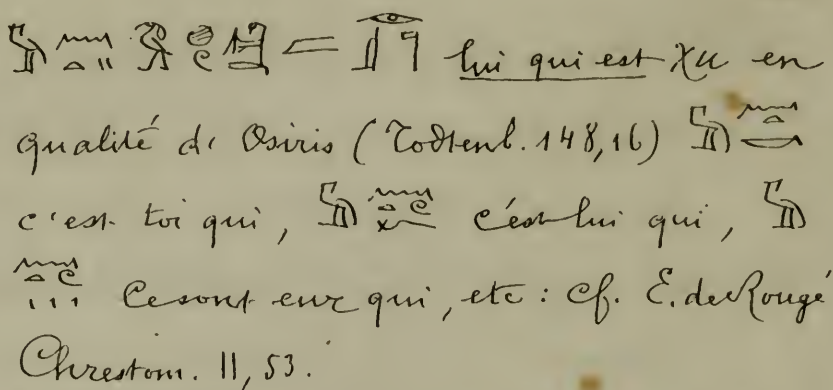 lui qui est χu en
qualité d' Osiris (Todtenb. 148,16)
c'est toi qui, c'est lui qui,
Ce sont eux qui, etc : cf. E. de Rougé
Chrestom. II, 53.